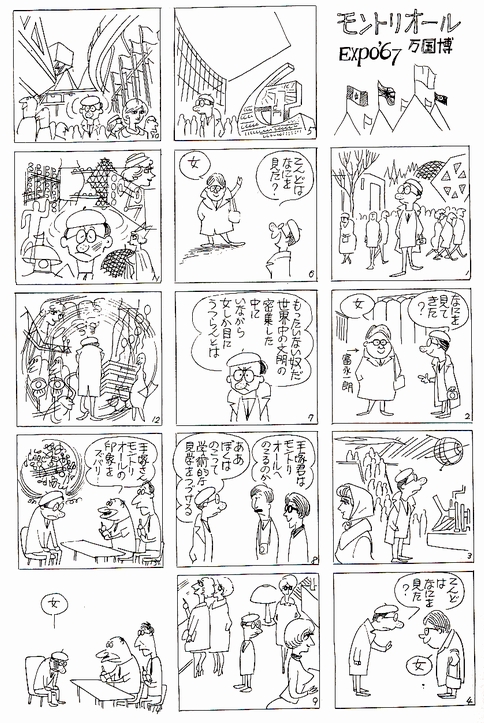 モントリオール
EXPO'67 万国博
1
なにを
見て
きた
?
女
富永一朗
2
3
こんど
は
なにを
見た
?
女
4
5
こんどは
なにを
見た?
女
6
もったいない奴だ
世界中の文明の
密集した
中に
いながら
女しか目に
うつらんとは
7
手塚君は
モントリ
オールへ
のこるのか
ああ
ぼくは
のこって
学術的な
見学をつづける
8
9
10
11
12
手塚さん
モントリ
オールの
印象を
ズバリ!
13
女
14